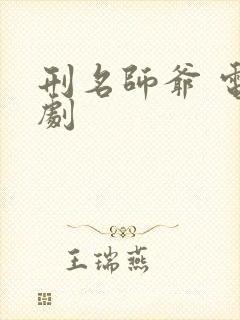 刑名師爺 電
劇
王瑞燕